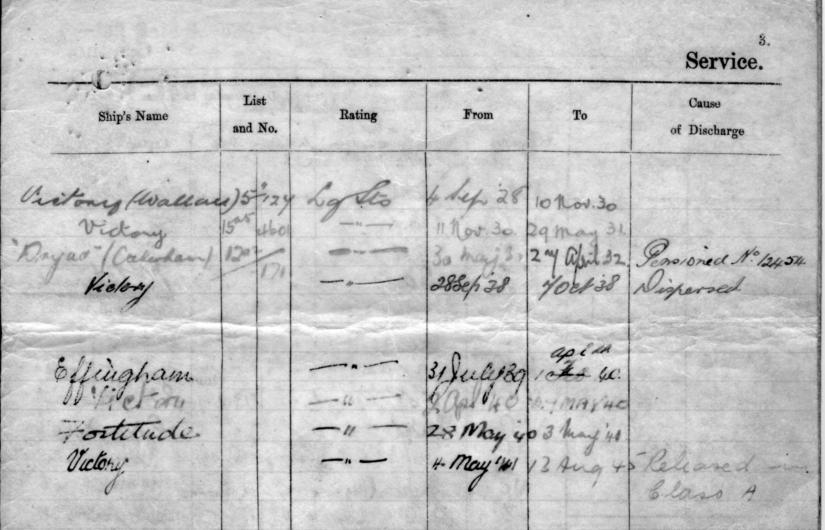 3.
Service.
Ship's Name List and No. Rating From To Cause of Discharge
Victory (Wallace) 5 124 Lg Sto 4 Sep '28 10 Nov. 30
Victory 15 4601 —"— 11 Nov. 30 29 May 31.
"Dryad" (Caterham) —"— 30 May 31 2nd April 32 Pensioned No. 12454
171
Victory —"— 28 Sep '38 7 Oct '38 Dispersed
Effingham —"— 31 July 39 40
Victory —"— Apl 40 May 40
Fortitude —"— 28 May 40 3 May '41
Victory —"— 4 May '41 13 Aug 45 Released in
Class A